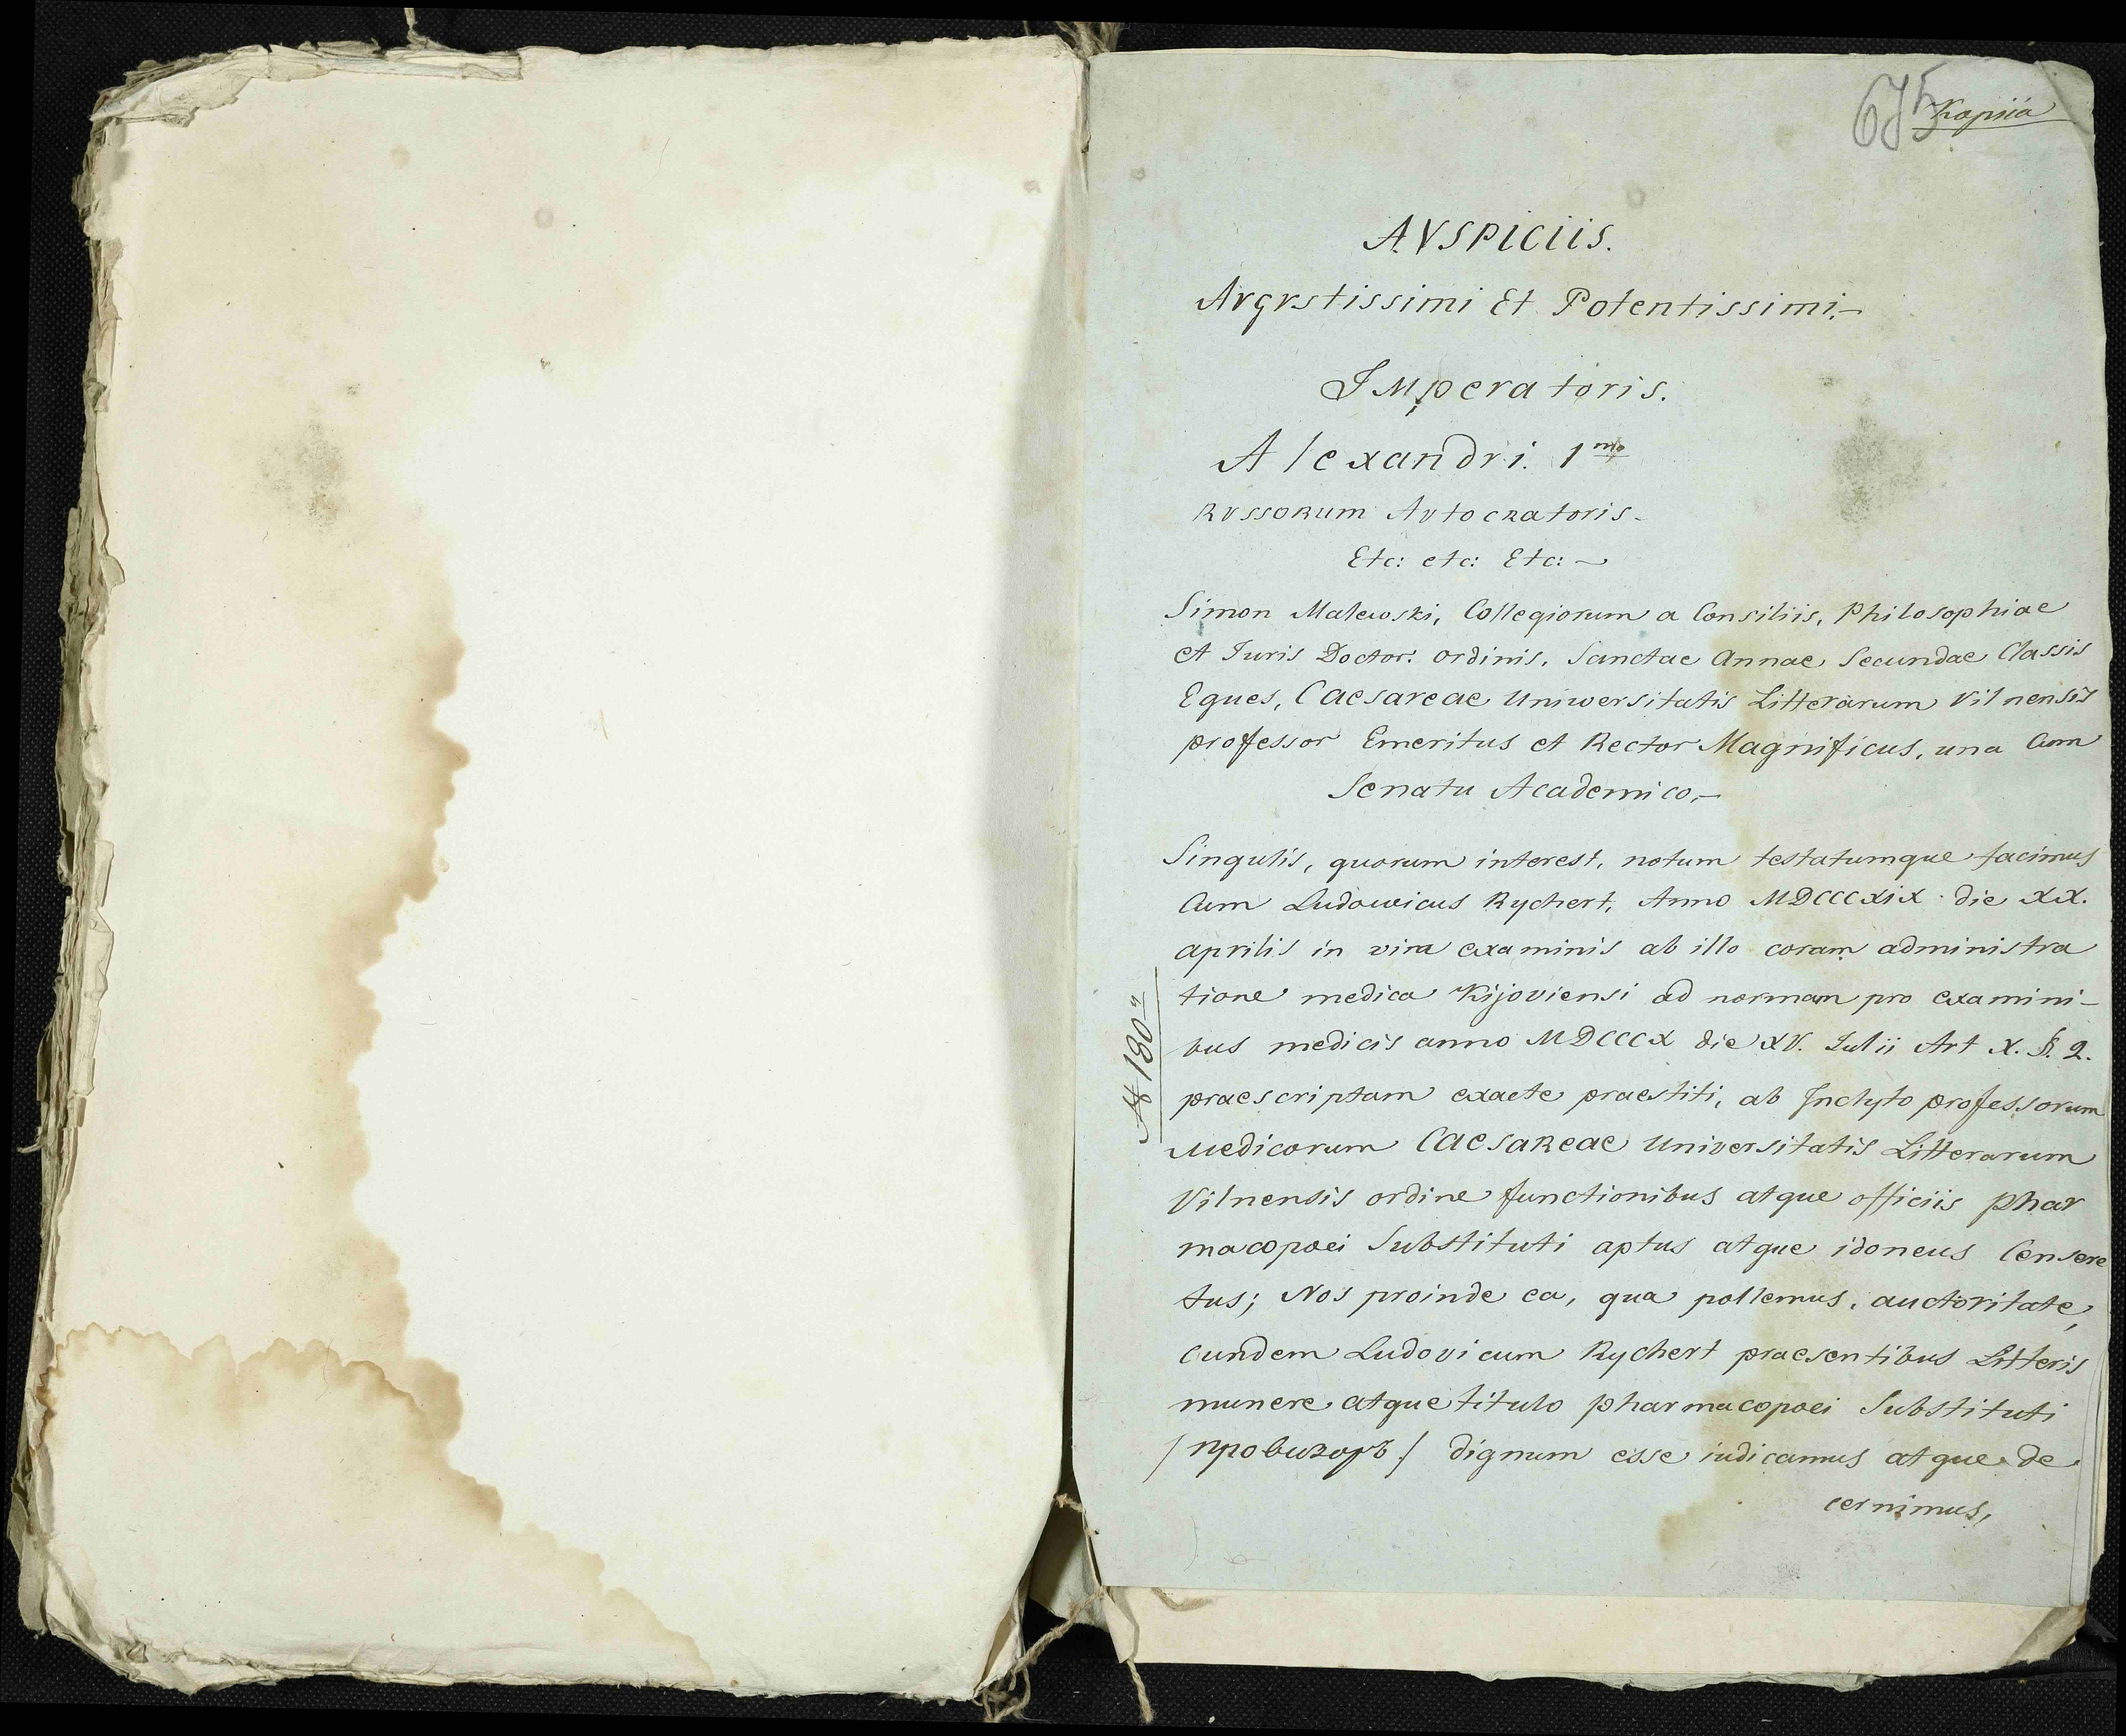 675
Kopiia
AVSPICIIS.
AVGVStissimi Et Potentissimi.—
IMperatoris.
Alexandri. 1mo
RVSSORUM AVtocRatoris—
Etc: etc: Etc:—
Simon Malewski, Collegiorum a Consiliis, Philosophiae
et Iuris Doctor: ordinis, Sanctae Annae Secundae Classis
Eques, Caesareae Uniwersitatis Litterarum Vilnensis
professor Emeritus et Rector Magnificus, una Cum
Senatu Academico,—
Singulis, quorum interest, notum testatumque facimus
Cum Ludowicus Rychert, Anno MDCCCXIX die XX.
aprilis in vim examinis ab illo coram administra
tione medica Kijoviensi ad normam pro examini-
bus medicis anno MDCCCX die XV. Iulii Art X. §. 2.
praescriptam exacte praestiti, ab Inclyto professorum
Medicorum CAESAREAE Universitatis Litterarum
Vilnensis ordine functionibus atque officiis phar
macopoei Substituti aptus atque idoneus Censere
tus; Nos proinde ea, qua pollemus, auctoritate,
eundem Ludovicum Rychert praesentibus Litteris
munere atque titulo pharmacopoei Substituti
/провизоръ/ dignum esse iudicamus atque de
cernimus,
№ 180